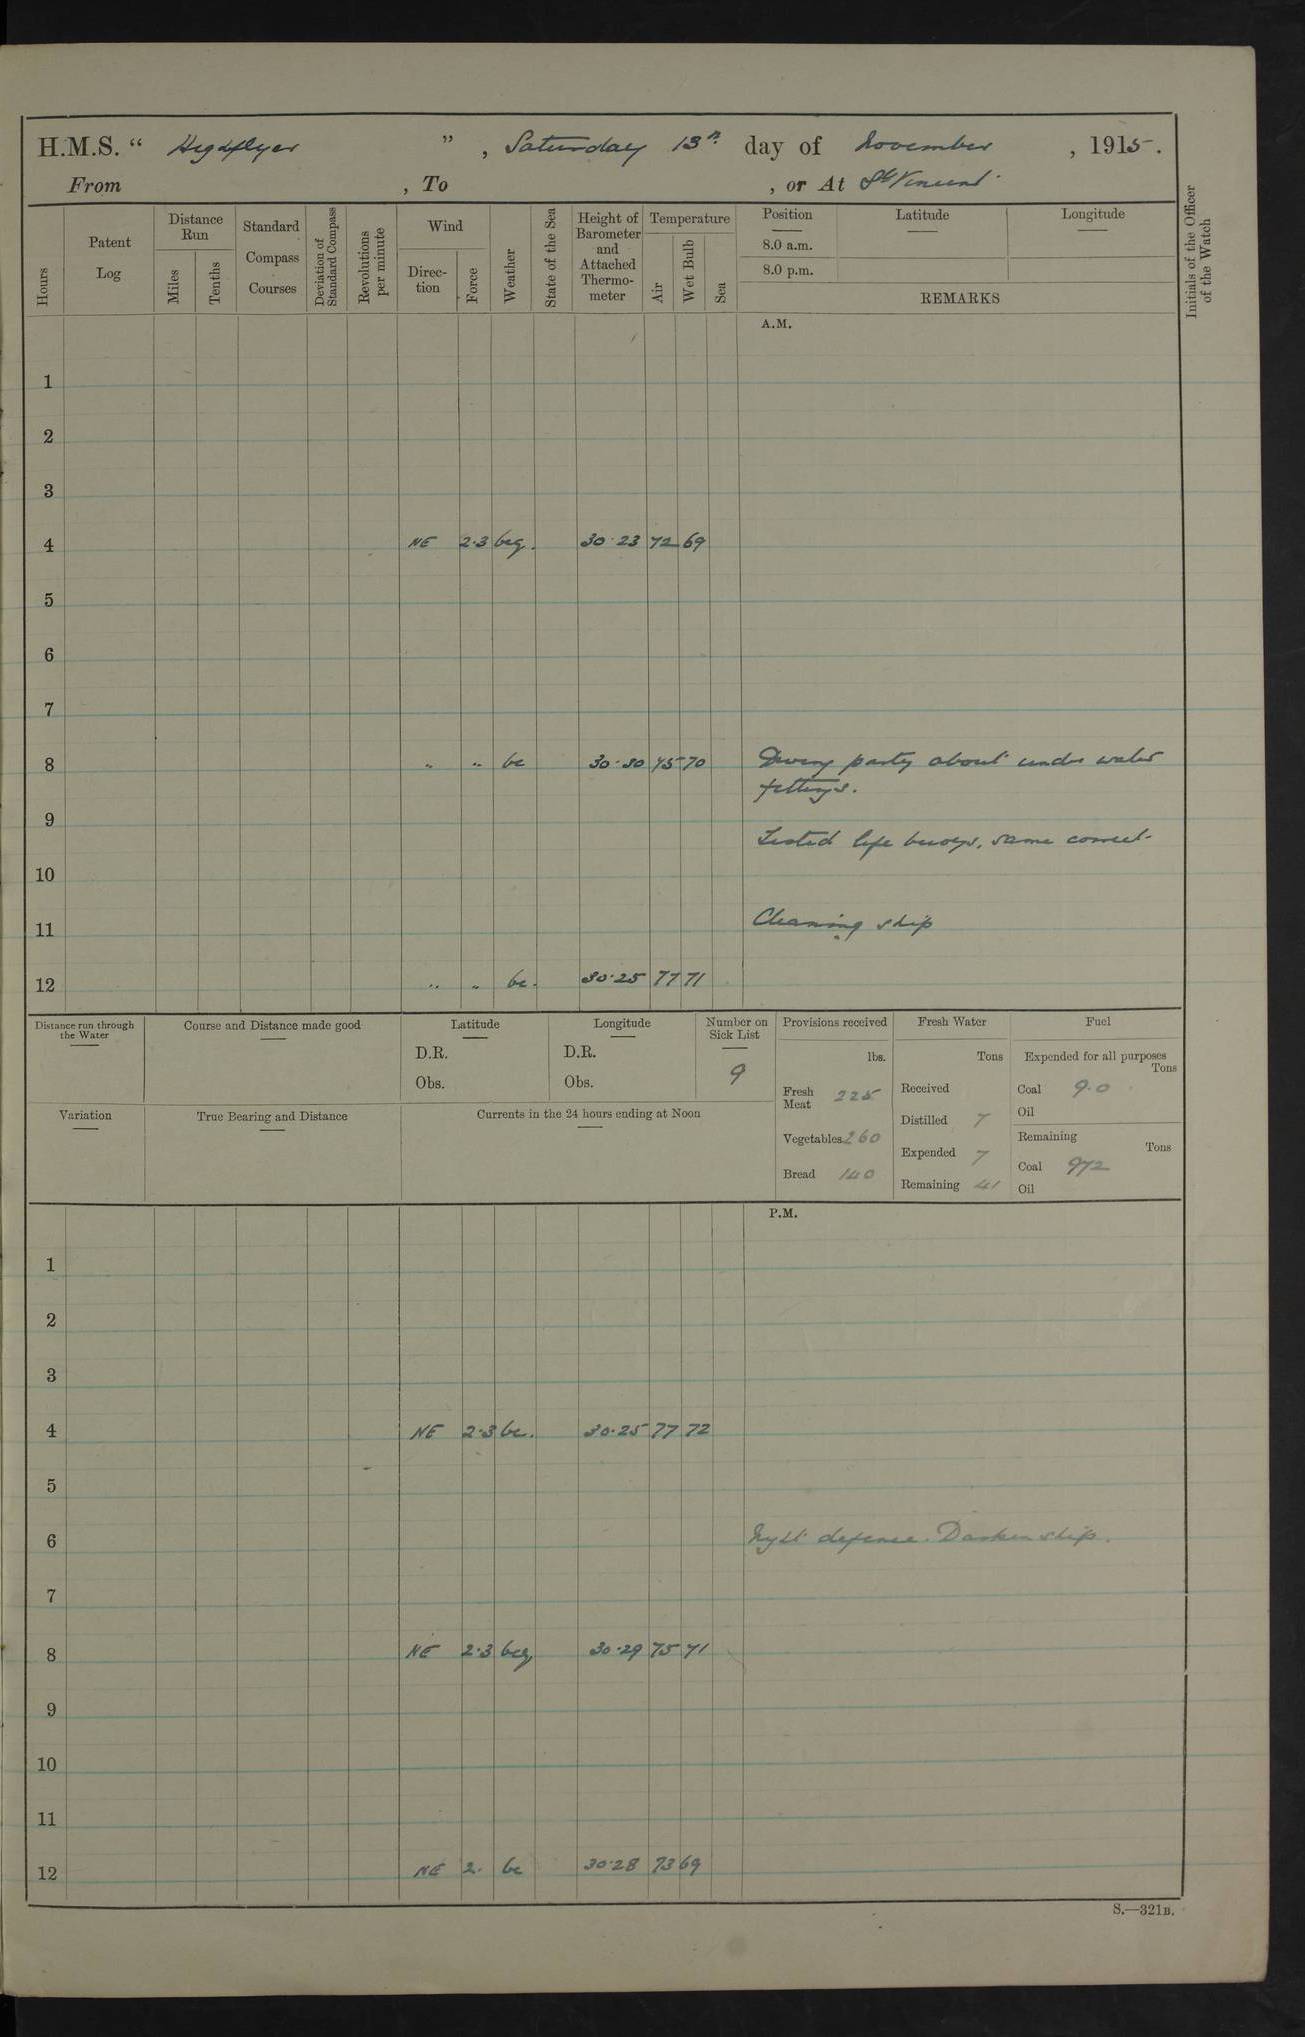 H.M.S. “ Highflyer ” , Saturday 13th day of November , 1915 .
From , To , or At St Vincent
Hours
Patent Log
Distance Run
Miles
Tenths
Standard Compass Courses
Deviation of Standard Compass
Revolutions per minute
Wind
Direction
Force
Weather
State of the Sea
Height of Barometer and Attached Thermometer
Temperature
Air
Wet Bulb
Sea
Position
8.0 a.m.
8.0 p.m.
Latitude
Longitude
REMARKS
Initials of the Officer of the Watch
A.M.
1
2
3
4 NE 2·3 bcq. 30·23 72 69
5
6
7
8 " " bc 30·30 75 70 Diving party about under water
fittings.
9
Tested life buoys, same correct.
10
11 Cleaning ship
12 " " bc. 30·25 77 71
Distance run through the Water
Course and Distance made good
Latitude
D.R.
Obs.
Longitude
D.R.
Obs.
Number on Sick List
9
Variation
True Bearing and Distance
Currents in the 24 hours ending at Noon
Provisions received
lbs.
Fresh Meat 225
Vegetables 260
Bread 140
Fresh Water
Tons
Received
Distilled 7
Expended 7
Remaining 41
Fuel
Expended for all purposes
Tons
Coal 9·0
Oil
Remaining
Tons
Coal 972
Oil
P.M.
1
2
3
4 NE 2·3 bc. 30·25 77 72
5
6 Night defence. Darken ship.
7
8 NE 2·3 bcq 30·29 75 71
9
10
11
12 NE 2. bc 30·28 73 69
S.—321B.